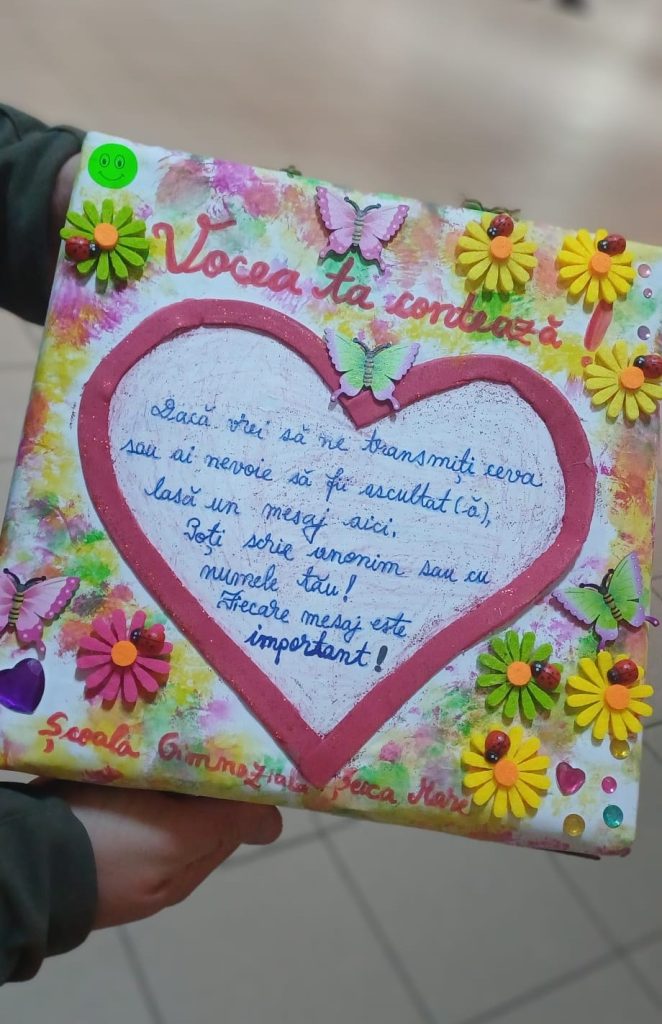 Vocea ta contează!
Dacă vrei să ne transmiți ceva
sau ai nevoie să fii ascultat(-ă),
lasă un mesaj aici.
Poți scrie anonim sau cu
numele tău!
Fiecare mesaj este
important!
Școala Gimnazială Șeica Mare